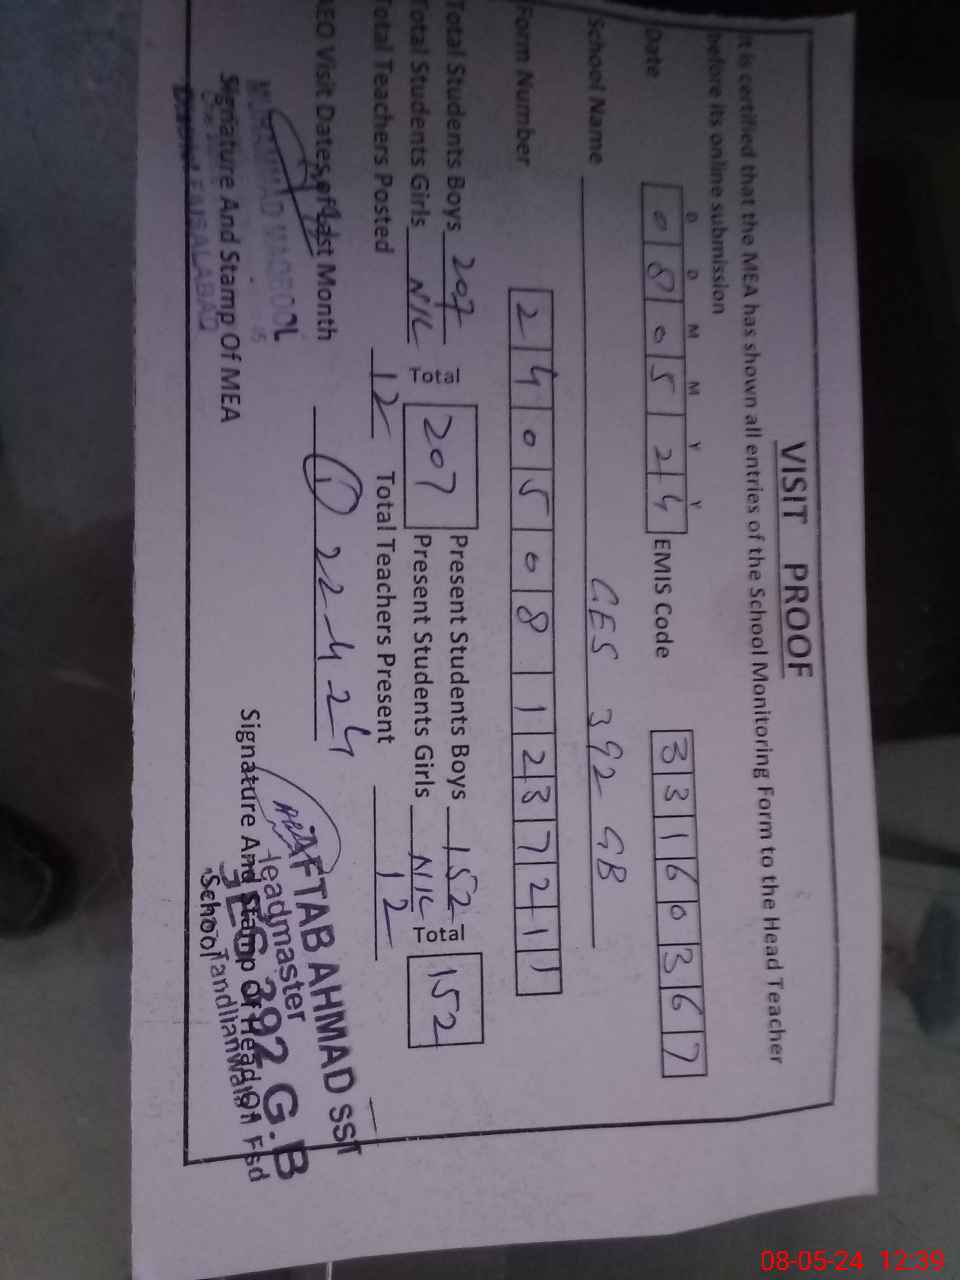 VISIT PROOF
It is certified that the MEA has shown all entries of the School Monitoring Form to the Head Teacher
before its online submission
D D M M Y Y
Date 0 8 0 5 2 4 EMIS Code 3 3 1 6 0 3 6 7
School Name GES 392 GB
Form Number 2 4 0 5 0 8 1 2 3 7 2 1 1
Total Students Boys 207 Total 207 Present Students Boys 152 Total 152
Total Students Girls NIL Present Students Girls NIL
Total Teachers Posted 12 Total Teachers Present 12
AEO Visit Dates of Last Month 1 22 4 24
MUHAMMAD MAQBOOL
Signature And Stamp Of MEA
FAISALABAD
AFTAB AHMAD SST
Headmaster
392 G.B
Signature And Stamp Of Head Of
School
Tandlianwala Fsd
08-05-24 12:39